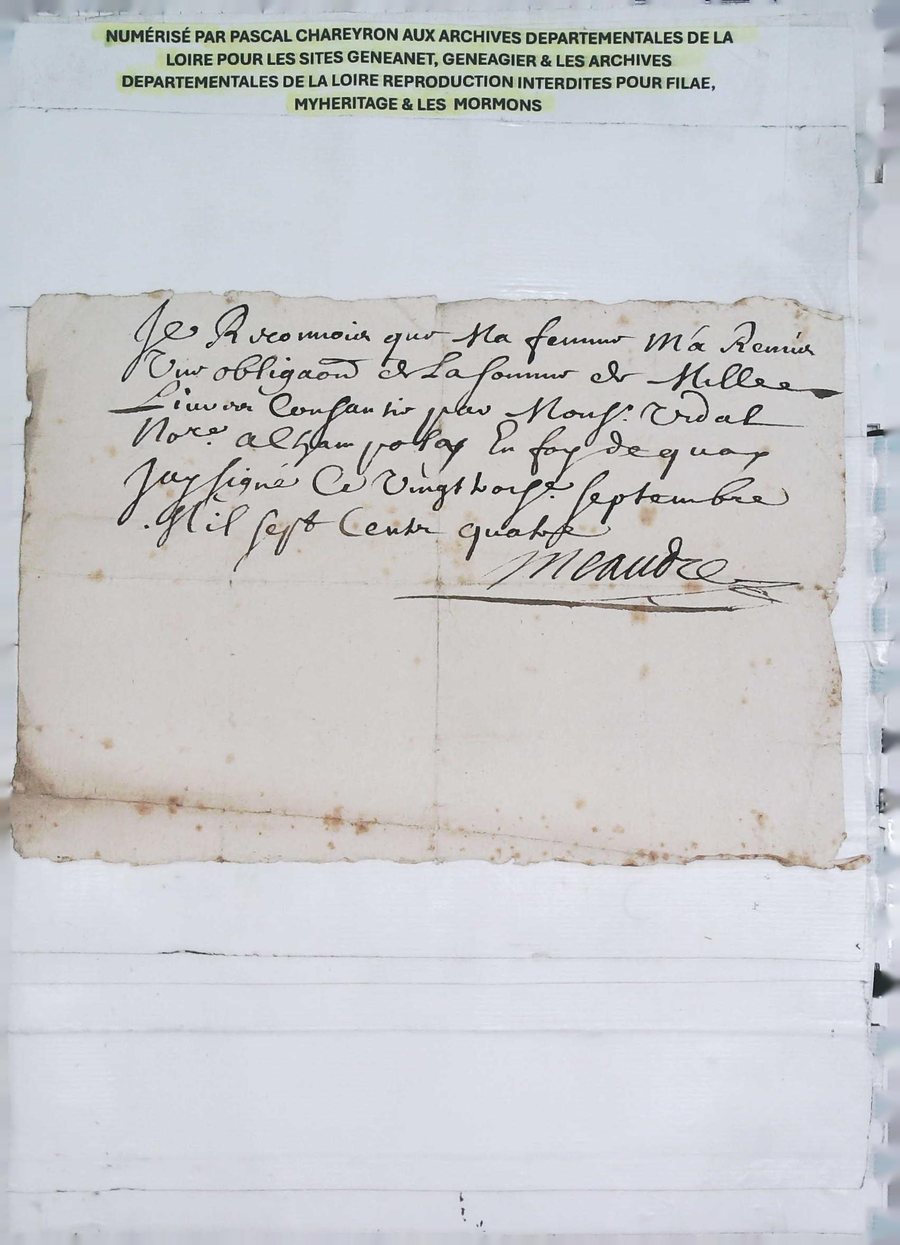 NUMÉRISÉ PAR PASCAL CHAREYRON AUX ARCHIVES DEPARTEMENTALES DE LA
LOIRE POUR LES SITES GENEANET, GENEAGIER & LES ARCHIVES
DEPARTEMENTALES DE LA LOIRE REPRODUCTION INTERDITES POUR FILAE,
MYHERITAGE & LES MORMONS
Je Reconnois que Ma femme M'a Remis
Une obligaon de La somme de Mille
Liures Consantie par Monsr. Vidal
Nore. a En foy de quoy
Jay signé Ce Vingt troise. septembre
Mil sept Cents quatre
Meandre